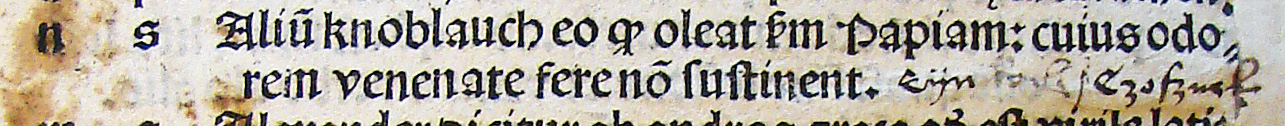 n s Aliū knoblauch eo ꝙ oleat ẜm Papiam: cuius odo⸗
rem venenate fere nō ſuſtinent. Eyn Czoſznek